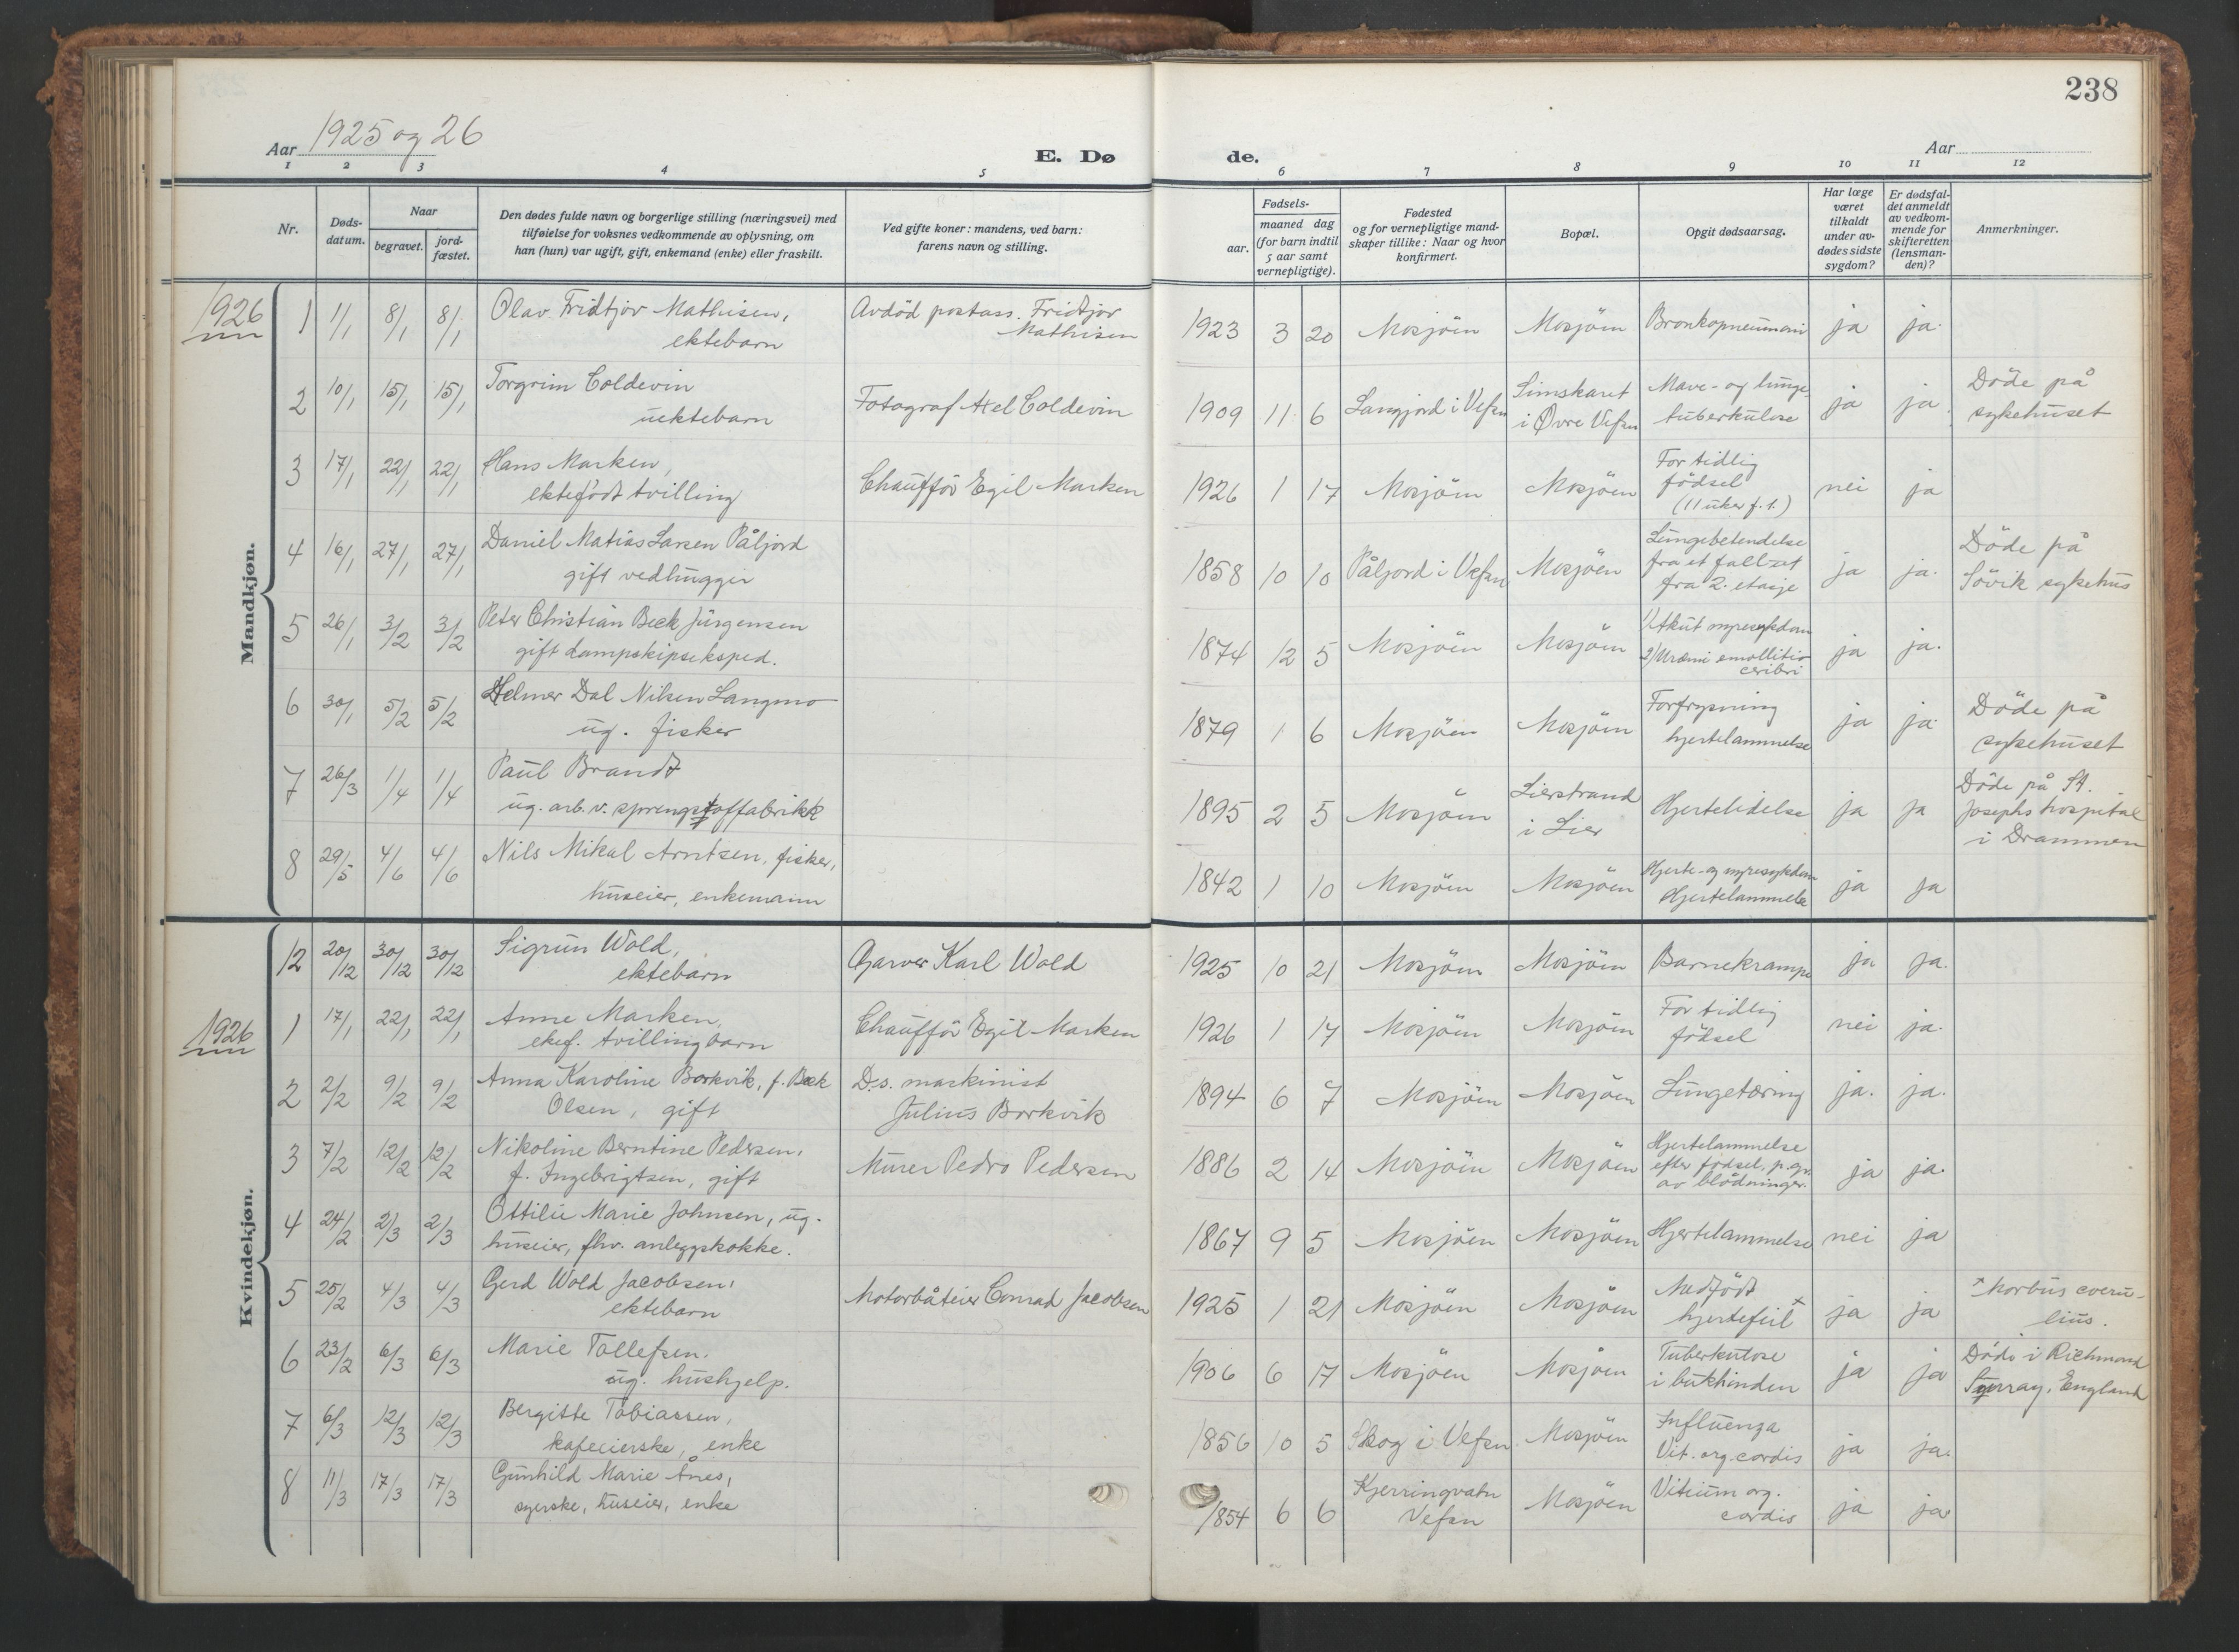 238
Aar 1925 og 26
E. Dø de.
Aar
1 2 3 4 5 6 7 8 9 10 11 12
Nr.
Døds-datum.
Naar
begravet.
jord-fæstet.
Den dødes fulde navn og borgerlige stilling (næringsvei) med
tilføielse for voksnes vedkommende av oplysning, om
han (hun) var ugift, gift, enkemand (enke) eller fraskilt.
Ved gifte koner: mandens, ved barn:
farens navn og stilling.
Fødsels-
aar.
maaned dag
(for barn indtil
5 aar samt
vernepligtige).
Fødested
og for vernepligtige mand-
skaper tillike: Naar og hvor
konfirmert.
Bopæl.
Opgit dødsaarsag.
Har læge
været
tilkaldt
under av-
dødes sidste
sygdom?
Er dødsfal-
det anmeldt
av vedkom-
mende for
skifteretten
(lensman-
den)?
Anmerkninger.
Mandkjøn.
1926
1 1/1 8/1 8/1 Olav Fridtjov Mathisen, ektebarn Avdöd postass. Fridtjov Mathisen 1923 3 20 Mosjöen Mosjöen Bronkopneumoni ja ja.
2 10/1 15/1 15/1 Torgrim Coldevin uektebarn Fotograf Axel Coldevin 1909 11 6 Langjord i Vefsn Simskaret i Øvre Vefsn Mave- og lunge tuberkulose ja ja. Döde på sykehuset
3 17/1 22/1 22/1 Hans Marken, ektefödt tvilling Chaufför Egil Marken 1926 1 17 Mosjöen Mosjöen For tidlig födsel (11 uker f. t.) nei ja
4 16/1 27/1 27/1 Daniel Matias Larsen Påljord gift vedhugger 1858 10 10 Påljord i Vefsn Mosjöen Lungebetendelse fra et fall ut fra 2. etasje ja ja. Döde på Sövik sykehus
5 26/1 3/2 3/2 Peter Christian Beck Jürgensen gift dampskipseksped. 1874 12 5 Mosjöen Mosjöen 1) Akut nyresykdom 2) Uræmi emollitio ceribri ja ja.
6 30/1 5/2 5/2 Helmer Dal Nilsen Langmo ug. fisker 1879 1 6 Mosjöen Mosjöen Forfrysning hjertelammelse ja ja. Döde på sykehuset
7 26/3 1/4 1/4 Paul Brandt ug. arb. v. sprengstoffabrikk 1895 2 5 Mosjöen Lierstrand i Lier Hjertelidelse ja ja Döde på St. Josephs hospital i Drammen
8 29/5 4/6 4/6 Nils Mikal Arntsen, fisker, huseier, enkemann 1842 1 10 Mosjöen Mosjöen Hjerte- og nyresykdom Hjertelammelse ja ja
Kvindekjøn.
12 20/12 30/12 30/12 Sigrun Wold, ektebarn Garver Karl Wold 1925 10 21 Mosjöen Mosjöen Barnekrampe ja ja.
1926
1 17/1 22/1 22/1 Anne Marken, ekef. tvillingbarn Chaufför Egil Marken 1926 1 17 Mosjöen Mosjöen For tidlig födsel nei ja.
2 2/2 9/2 9/2 Anna Karoline Borkvik, f. Beck Olsen, gift D.s. maskinist Julius Borkvik 1894 6 7 Mosjöen Mosjöen Lungetæring ja. ja.
3 7/2 12/2 12/2 Nikoline Berntine Pedersen, f. Ingebrigtsen, gift Murer Pedro Pedersen 1886 2 14 Mosjöen Mosjöen Hjertelammelse efter födsel, p. gr. av blödninger. ja ja.
4 24/2 2/3 2/3 Ottilie Marie Johnsen, ug. huseier, fhv. anleggskokke. 1867 9 5 Mosjöen Mosjöen Hjertelammelse nei ja
5 25/2 4/3 4/3 Gerd Wold Jacobsen, ektebarn Motorbåteier Conrad Jacobsen 1925 1 21 Mosjöen Mosjöen Medfödt hjertefeil x ja ja x Morbus coeru-lius.
6 23/2 6/3 6/3 Marie Tollefsen. ug. hushjelp. 1906 6 17 Mosjöen Mosjöen Tuberkulose i bukhinden ja ja Döde i Richmond Surray, England
7 6/3 12/3 12/3 Bergitte Tobiassen, kafeeierske, enke 1856 10 5 Skog i Vefsn Mosjöen Influenza Vit. org. cordis ja ja.
8 11/3 17/3 17/3 Gunhild Marie Ånes, syerske, huseier, enke 1854 6 6 Kjerringvatn Vefsn Mosjöen Vitium org. cordis ja ja.